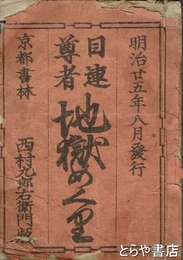 明治廿五年八月發行
目連尊者
地獄めくり
京都書林
西村九郎右衛門
とらや書店